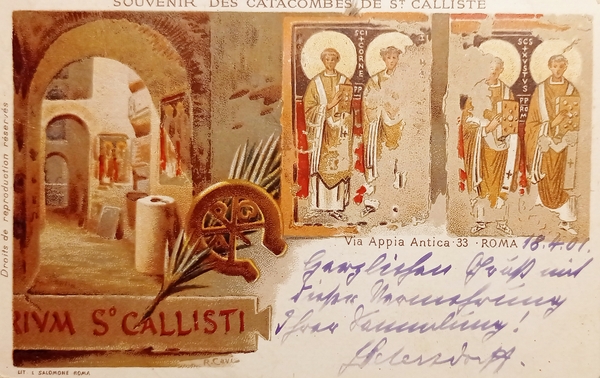 SOUVENIR DES CATACOMBES DE ST CALLISTE
Droits de reproduction réservés
SCI
+CORNE
PP
SCS
+XUSTVS
PP
ROM
Via Appia Antica · 33 · ROMA 18.4.01.
Herzlichen Gruß mit
dieser Vermehrung
Ihrer Sammlung!
RIVM So CALLISTI
LIT. SALOMONE ROMA